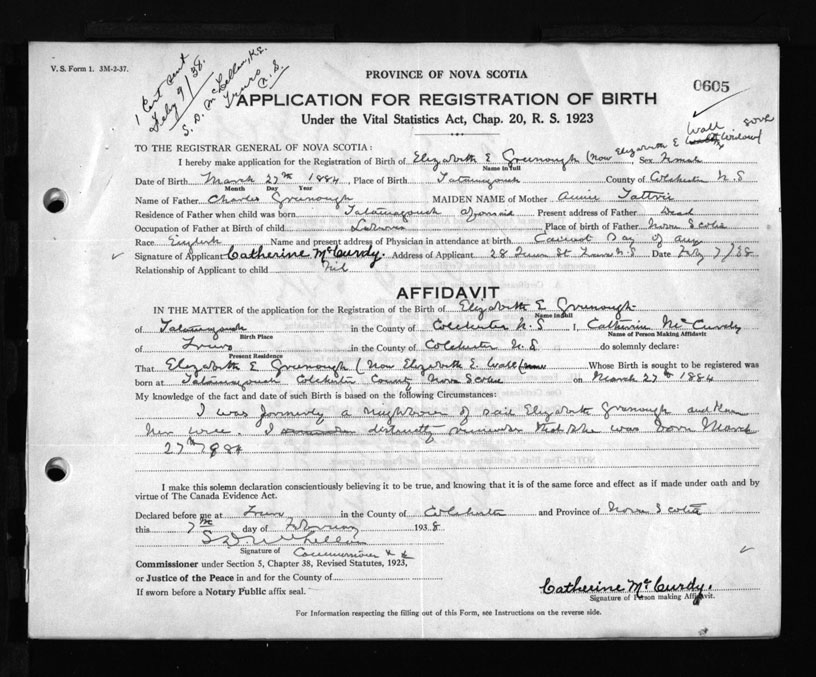 V. S. Form 1. 3M-2-37.
1 Cert sent
Feby 9/38.
S. D. McLellan, K.C.
Truro
N. S.
PROVINCE OF NOVA SCOTIA
0605
APPLICATION FOR REGISTRATION OF BIRTH
Under the Vital Statistics Act, Chap. 20, R. S. 1923
TO THE REGISTRAR GENERAL OF NOVA SCOTIA:
Wall
I hereby make application for the Registration of Birth of Elizabeth E Greenough (Now Elizabeth E Widow) Sex Female
Name in full
Date of Birth March 27th 1884, Place of Birth Tatamagouch County of Colchester N S
Month Day Year
Name of Father Charles Greenough MAIDEN NAME of Mother Annie Tattrie
Residence of Father when child was born Tatamagouch aforesaid Present address of Father Dead
Occupation of Father at Birth of child Place of birth of Father Nova Scotia
Race English Name and present address of Physician in attendance at birth Cannot Say if any
Signature of Applicant Catherine McCurdy. Address of Applicant 28 St Truro N.S Date Feby 7/38
Relationship of Applicant to child Nil
AFFIDAVIT
IN THE MATTER of the application for the Registration of the Birth of Elizabeth E Greenough
Name in full
of Tatamagouch in the County of Colchester N S I, Catherine McCurdy
Birth Place Name of Person Making Affidavit
of Truro in the County of Colchester N. S do solemnly declare:
Present Residence
That Elizabeth E Greenough (Now Elizabeth E. Wall) Whose Birth is sought to be registered was
born at Tatamagouch Colchester County Nova Scotia on March 27th 1884
My knowledge of the fact and date of such Birth is based on the following Circumstances:
I was formerly a neighbour of said Elizabeth Greenough and knew
her well. I distinctly remember that she was born March
27th 1884
I make this solemn declaration conscientiously believing it to be true, and knowing that it is of the same force and effect as if made under oath and by
virtue of The Canada Evidence Act.
Declared before me at Truro in the County of Colchester and Province of Nova Scotia
this 7th day of February 1938
S D McLellan
Signature of Commissioner
Commissioner under Section 5, Chapter 38, Revised Statutes, 1923,
or Justice of the Peace in and for the County of
If sworn before a Notary Public affix seal.
Catherine McCurdy.
Signature of Person making Affidavit.
For Information respecting the filling out of this Form, see Instructions on the reverse side.